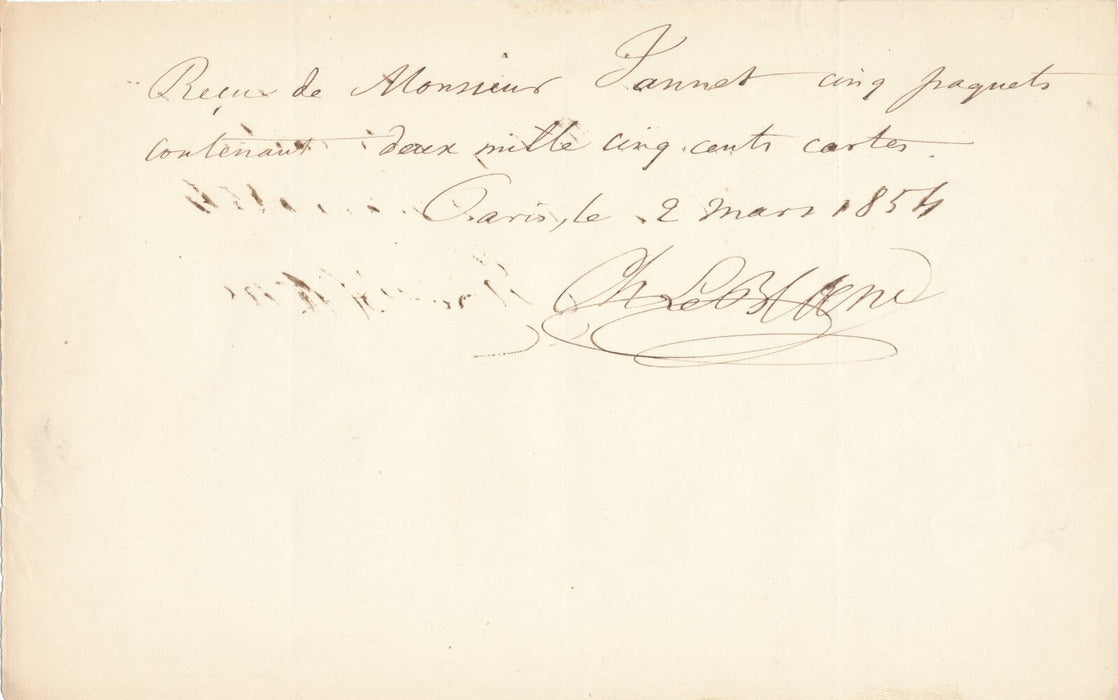 Reçu de Monsieur Jannet cinq paquets
contenant deux mille cinq cents cartes.
Paris, le 2 mars 1854
Ch Le Blanc